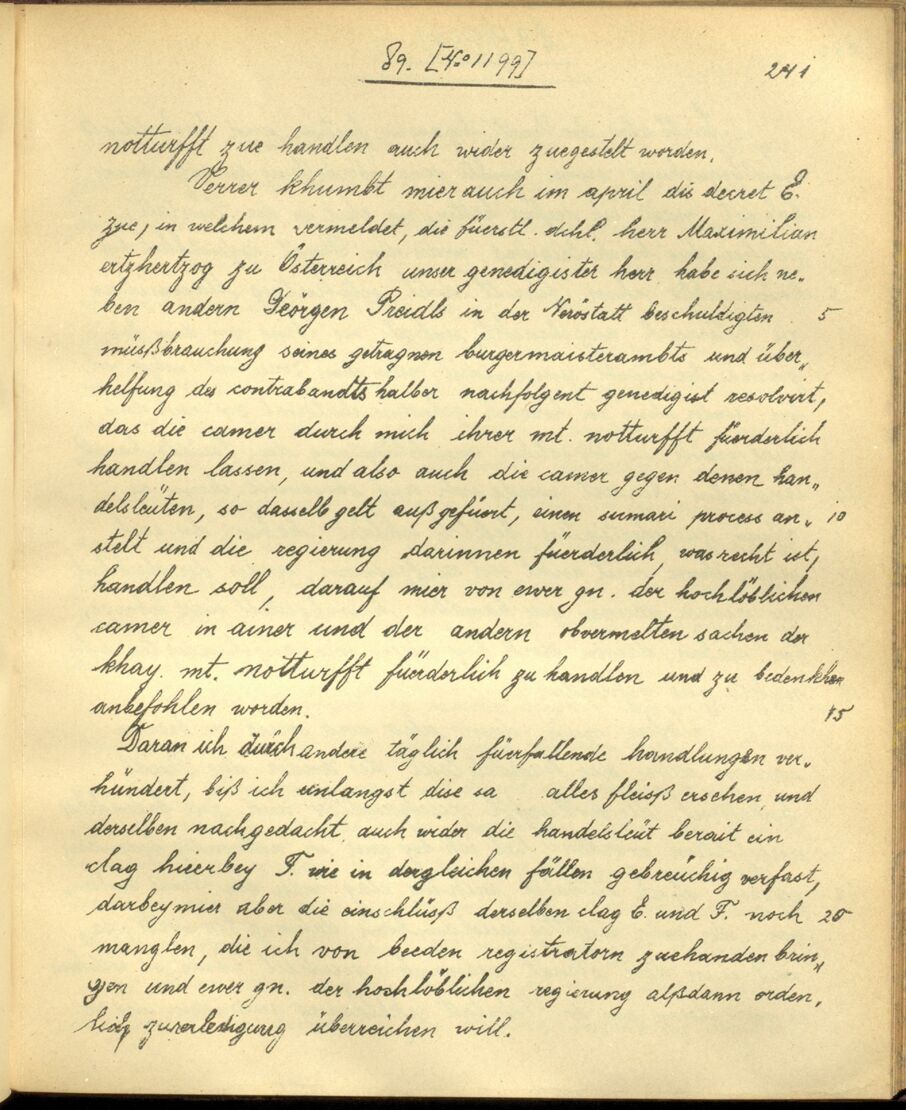 89. [No 1199]
241
notturfft zue handlen auch wider zuegestelt worden.
Verrer khumbt mier auch im april dis decret E.
zue, in welchem vermeldet, die füerstl. dchl. herr Maximilian
ertzhertzog zu Österreich unser genedigister herr habe sich ne„
ben andern Geörgen Preidls in der Neröstatt beschuldigten 5
müsßbrauchung seines getragnen burgermaisterambts und über„
helfung des contrabandts halber nachfolgent genedigist resolvirt,
das die camer durch mich ihrer mt. notturfft füerderlich
handlen lassen, und also auch die camer gegen denen han„
delsleüten, so dasselb gelt außgefüert, einen sumari process an„ 10
stelt und die regierung darinnen füerderlich, was recht ist,
handlen soll, darauf mier von ewer gn. der hochlöblichen
camer in ainer und der andern obvermelten sachen der
khay. mt. notturfft füerderlich zu handlen und zu bedenkhen
anbefohlen worden. 15
Daran ich durch andere täglich füerfallende handlungen ver„
hündert, biß ich unlangst dise sa alles fleisß ersehen und
derselben nachgedacht auch wider die handelsleüt berait ein
clag hieerbey F. wie in dergleichen fällen gebreüchig verfast,
darbey mier aber die einschlüsß derselben clag E. und F. noch 20
manglen, die ich von beeden registratorn zuehanden brin„
gen und ewer gn. der hochlöblichen regierung alßdann orden„
lich zur erledigung überreichen will.